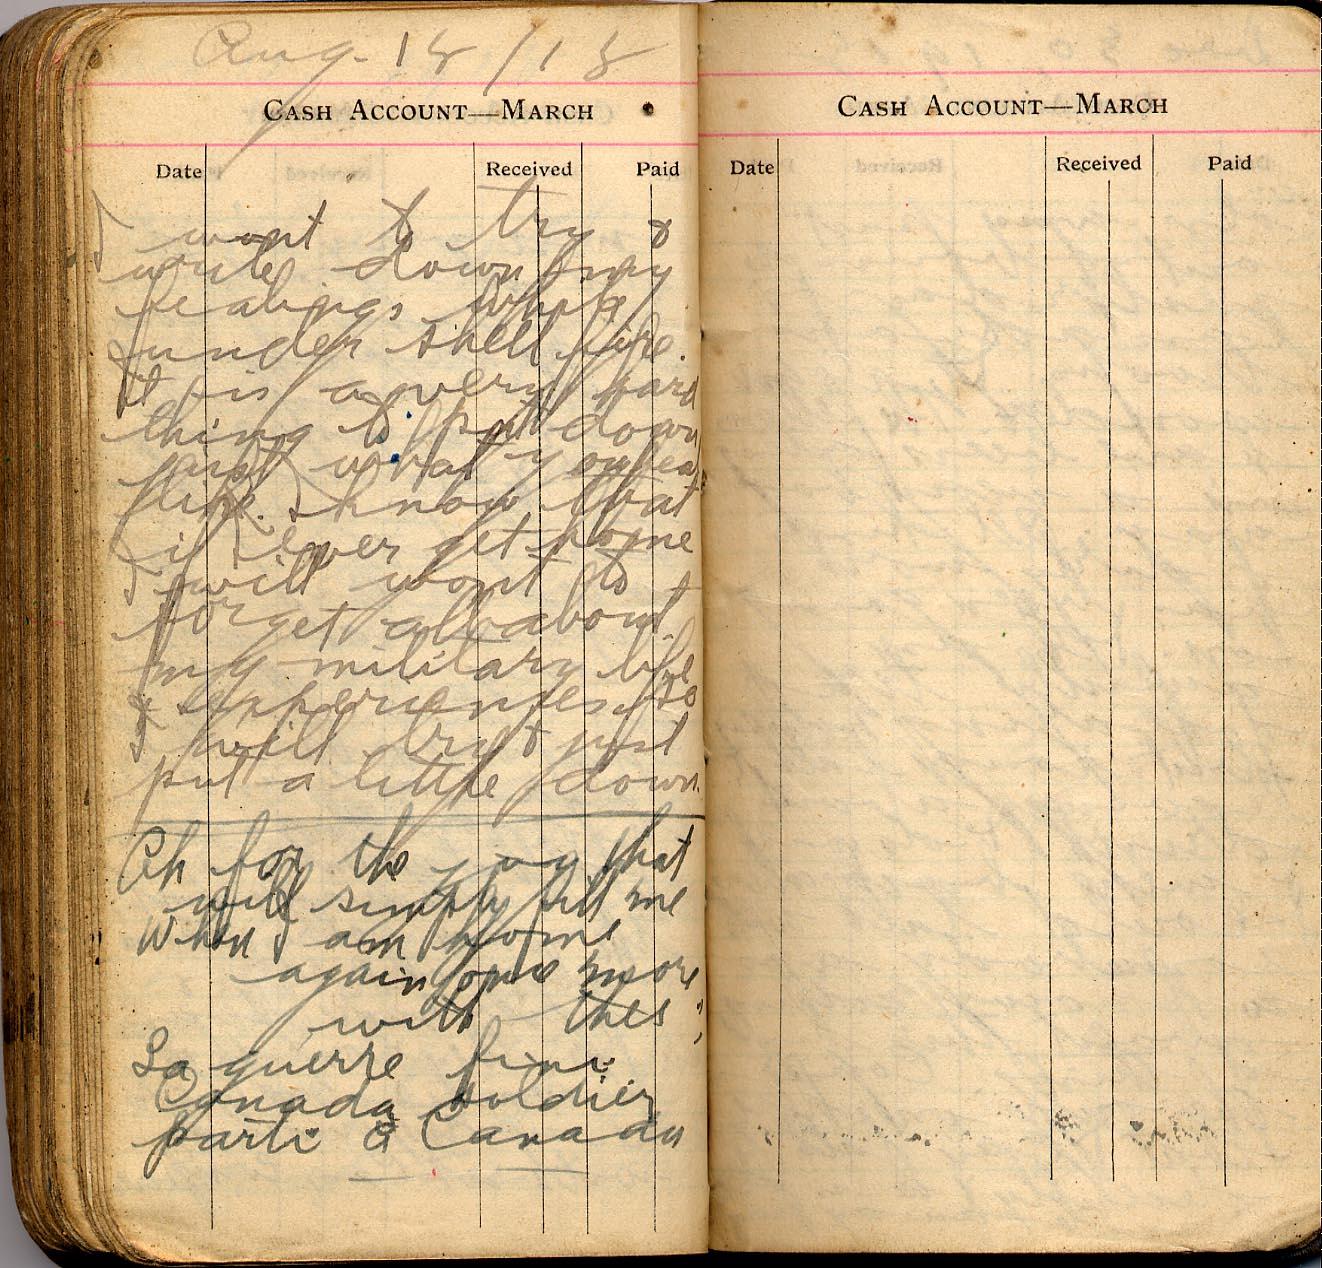 Aug. 18/18
CASH ACCOUNT—MARCH
Date Received Paid
I want to try &
write down my
fealings while
under shell fire.
It is a very hard
thing to put down
just what you feal
like. I know that
if I ever get home
I will want to
forget all about
my military life
& experiences so
I will try & just
put a little down.
Oh for the joy that
will simply fill me
When I am home
again once more
with this ;
La guerre fini
Canada soldier
parti a Canada
CASH ACCOUNT—MARCH
Date Received Paid